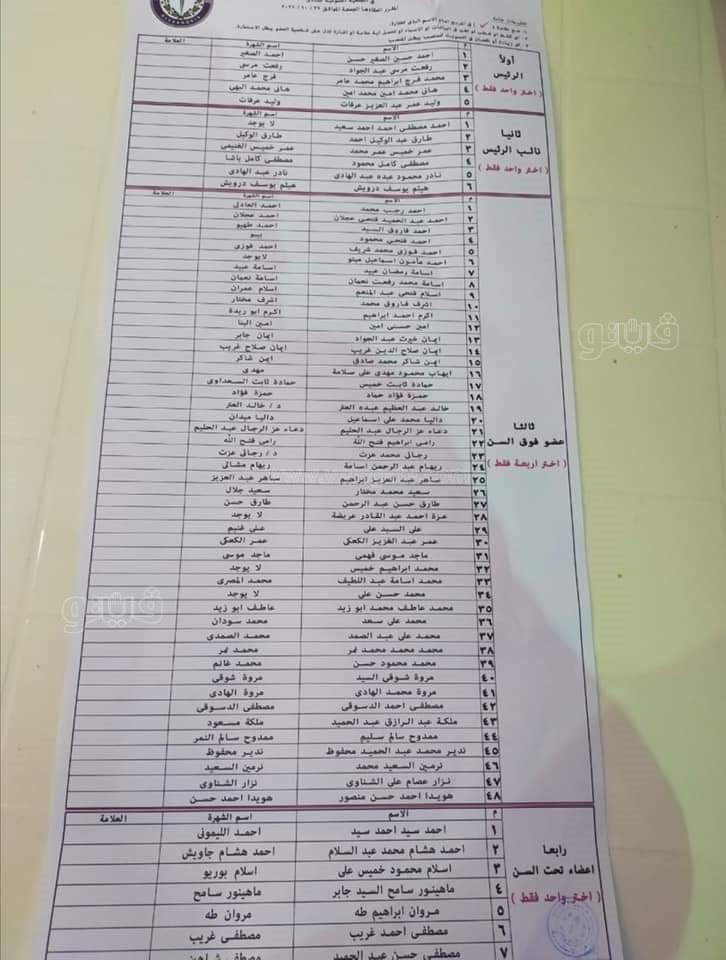 المقرر انعقادها الجمعة الموافق
تعليمات هامة
أولاً
الرئيس
( اختر واحد فقط )
م الاسم اسم الشهرة العلامة
١ احمد حسين الصغير حسن احمد الصغير
٢ رفعت مرسى عبد الجواد رفعت مرسى
٣ محمد فرج ابراهيم محمد عامر فرج عامر
٤ هانى محمد امين محمد امين هانى محمد البهى
٥ وليد عمر عبد العزيز عرفات وليد عرفات
ثانيا
نائب الرئيس
( اختر واحد فقط )
م الاسم اسم الشهرة
١ احمد مصطفى احمد احمد سعيد لا يوجد
٢ طارق عبد الوكيل احمد طارق الوكيل
٣ عمر خميس عمر محمد عمر خميس الغنيمى
٤ مصطفى كامل محمود مصطفى كامل باشا
٥ نادر محمود عبده عبد الهادى نادر عبد الهادى
٦ هيثم يوسف درويش هيثم يوسف درويش
ثالثا
عضو فوق السن
( اختر اربعة فقط )
م الاسم اسم الشهرة العلامة
١ احمد رجب محمد احمد العادلى
٢ احمد عبد الحميد فتحى عجلان احمد عجلان
٣ احمد فاروق السيد احمد طهيو
٤ احمد فتحى محمود بيبو
٥ احمد فوزى محمد شريف احمد فوزى
٦ احمد مأمون اسماعيل لايوجد
٧ اسامة رمضان عبيد اسامة عبيد
٨ اسامة محمد رفعت نعمان اسامة نعمان
٩ اسلام فتحى عبد المنعم اسلام عمران
١٠ اشرف فاروق محمد اشرف مختار
١١ اكرم احمد ابراهيم اكرم ابو ريدة
١٢ امين حسنى امين امين البنا
١٣ ايمان خيرت عبد الجواد ايمان جابر
١٤ ايمان صلاح الدين غريب ايمان صلاح غريب
١٥ ايمن شاكر محمد صادق ايمن شاكر
١٦ ايهاب محمود مهدى على سلامة مهدى
١٧ حمادة ثابت خميس حمادة ثابت السعداوى
١٨ حمزة فؤاد حماد حمزة فؤاد
١٩ خالد عبد العظيم عبده العتر د/ خالد العتر
٢٠ داليا محمد على اسماعيل داليا ميدان
٢١ دعاء عز الرجال عبد الحليم دعاء عز الرجال عبد الحليم
٢٢ رامى ابراهيم فتح الله رامى فتح الله
٢٣ رجائى محمد عزت د/ رجائى عزت
٢٤ ريهام عبد الرحمن اسامة ريهام مشالى
٢٥ ساهر عبد العزيز ابراهيم ساهر عبد العزيز
٢٦ سعيد محمد مختار سعيد جلال
٢٧ طارق حسن عبد الرحمن طارق حسن
٢٨ عزة احمد عبد القادر عريشة لا يوجد
٢٩ على السيد على على غنيم
٣٠ عمر عبد العزيز الكعكى عمر الكعكى
٣١ ماجد موسى فهمى ماجد موسى
٣٢ محمد ابراهيم خميس لا يوجد
٣٣ محمد اسامة عبد اللطيف محمد المصرى
٣٤ محمد حسن على لا يوجد
٣٥ محمد عاطف محمد ابو زيد عاطف ابو زيد
٣٦ محمد على سعد محمد سودان
٣٧ محمد على عبد الصمد محمد الصمدى
٣٨ محمد محمد محمد نمر محمد نمر
٣٩ محمد محمود حسن محمد غانم
٤٠ مروة شوقى السيد مروة شوقى
٤١ مروة محمد الهادى مروة الهادى
٤٢ مصطفى احمد الدسوقى مصطفى الدسوقى
٤٣ ملكة عبد الرازق عبد الحميد ملكة مسعود
٤٤ ممدوح سالم سليم ممدوح سالم النمر
٤٥ ندير محمد عبد الحميد محفوظ ندير محفوظ
٤٦ نرمين السعيد محمد نرمين السعيد
٤٧ نزار عصام على الشناوى نزار الشناوى
٤٨ هويدا احمد حسن منصور هويدا احمد حسن
رابعا
اعضاء تحت السن
( اختر واحد فقط )
م الاسم اسم الشهرة العلامة
١ احمد سيد احمد سيد احمد الليمونى
٢ احمد هشام محمد عبد السلام احمد هشام جاويش
٣ اسلام محمود خميس على اسلام بوريو
٤ ماهينور سامح السيد جابر ماهينور سامح
٥ مروان ابراهيم طه مروان طه
٦ مصطفى احمد غريب مصطفى غريب
٧ مصطفى حسن عبد الحميد مصطفى شاهين
ڤيتو
ڤيتو